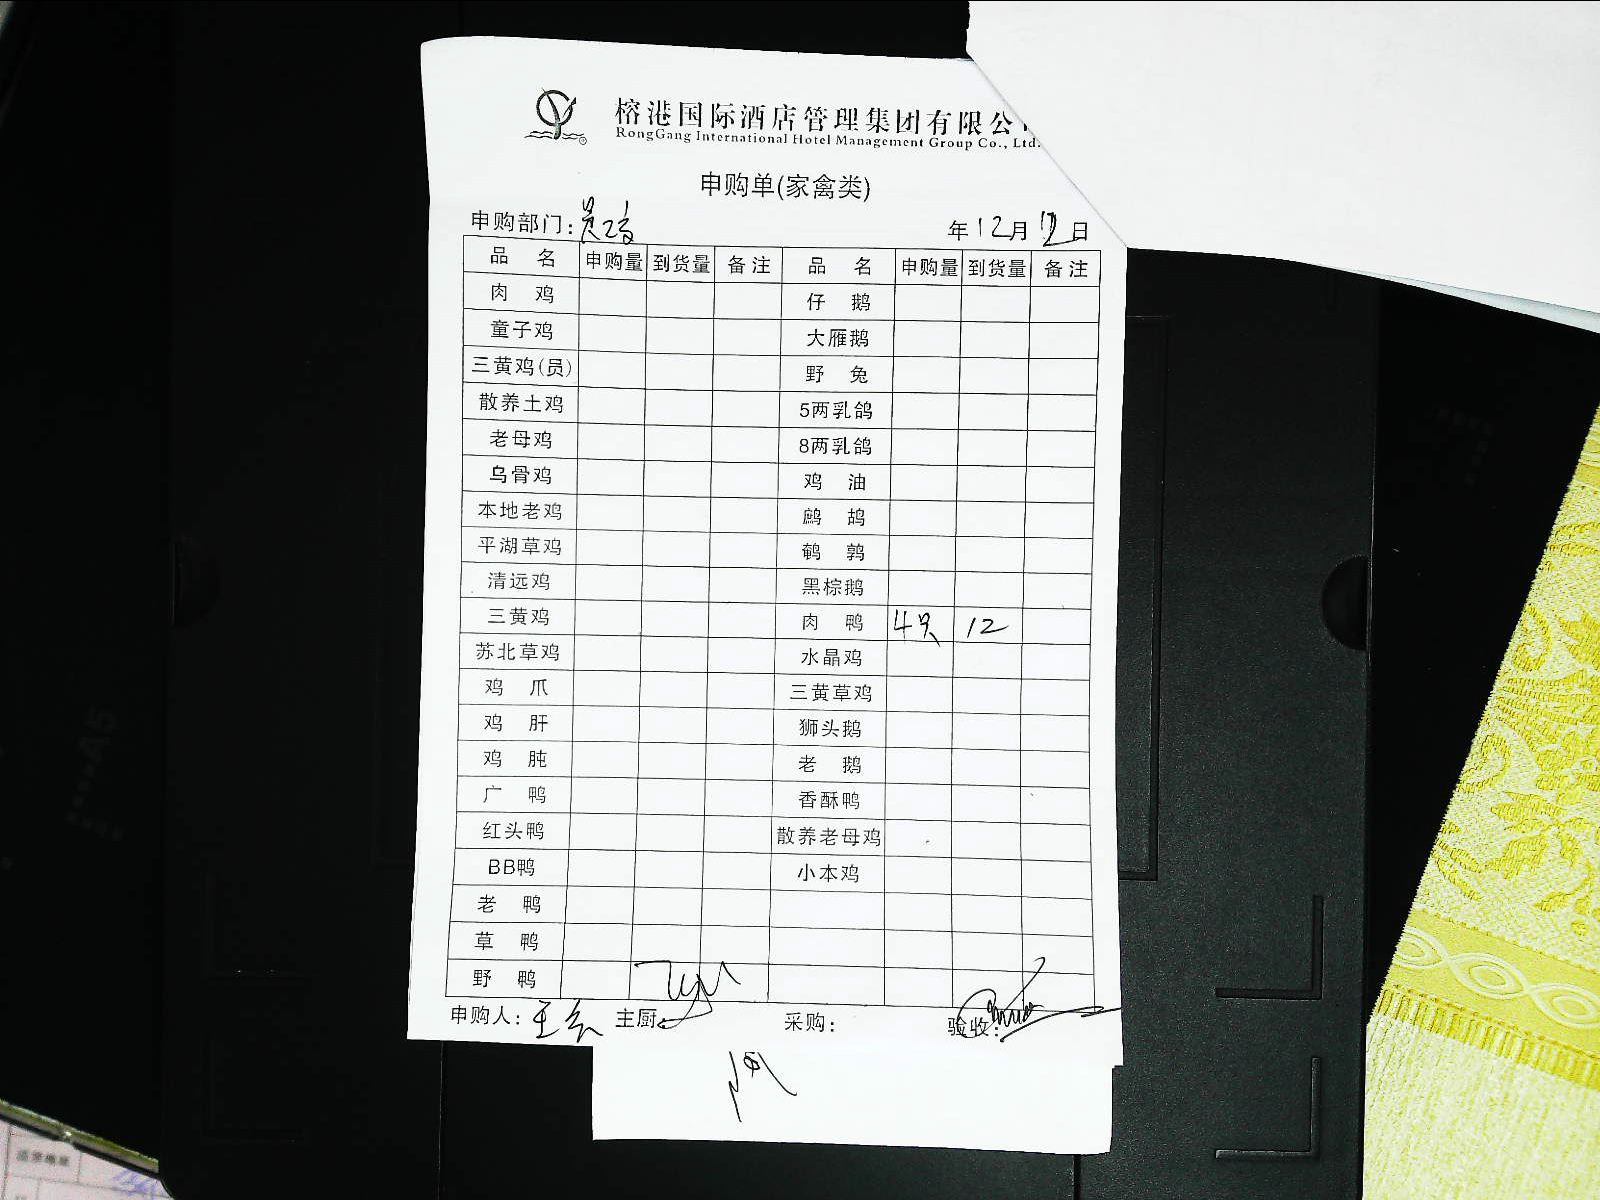 榕港国际酒店管理集团有限公
RongGang International Hotel Management Group Co., Ltd.
申购单(家禽类)
申购部门: 年12月12日
品 名 申购量 到货量 备注 品 名 申购量 到货量 备注
肉 鸡 仔 鹅
童子鸡 大雁鹅
三黄鸡(员) 野 兔
散养土鸡 5两乳鸽
老母鸡 8两乳鸽
乌骨鸡 鸡 油
本地老鸡 鹧 鸪
平湖草鸡 鹌 鹑
清远鸡 黑棕鹅
三黄鸡 肉 鸭 4只 12
苏北草鸡 水晶鸡
鸡 爪 三黄草鸡
鸡 肝 狮头鹅
鸡 肫 老 鹅
广 鸭 香酥鸭
红头鸭 散养老母鸡
BB鸭 小本鸡
老 鸭
草 鸭
野 鸭
申购人: 主厨 采购: 验收: